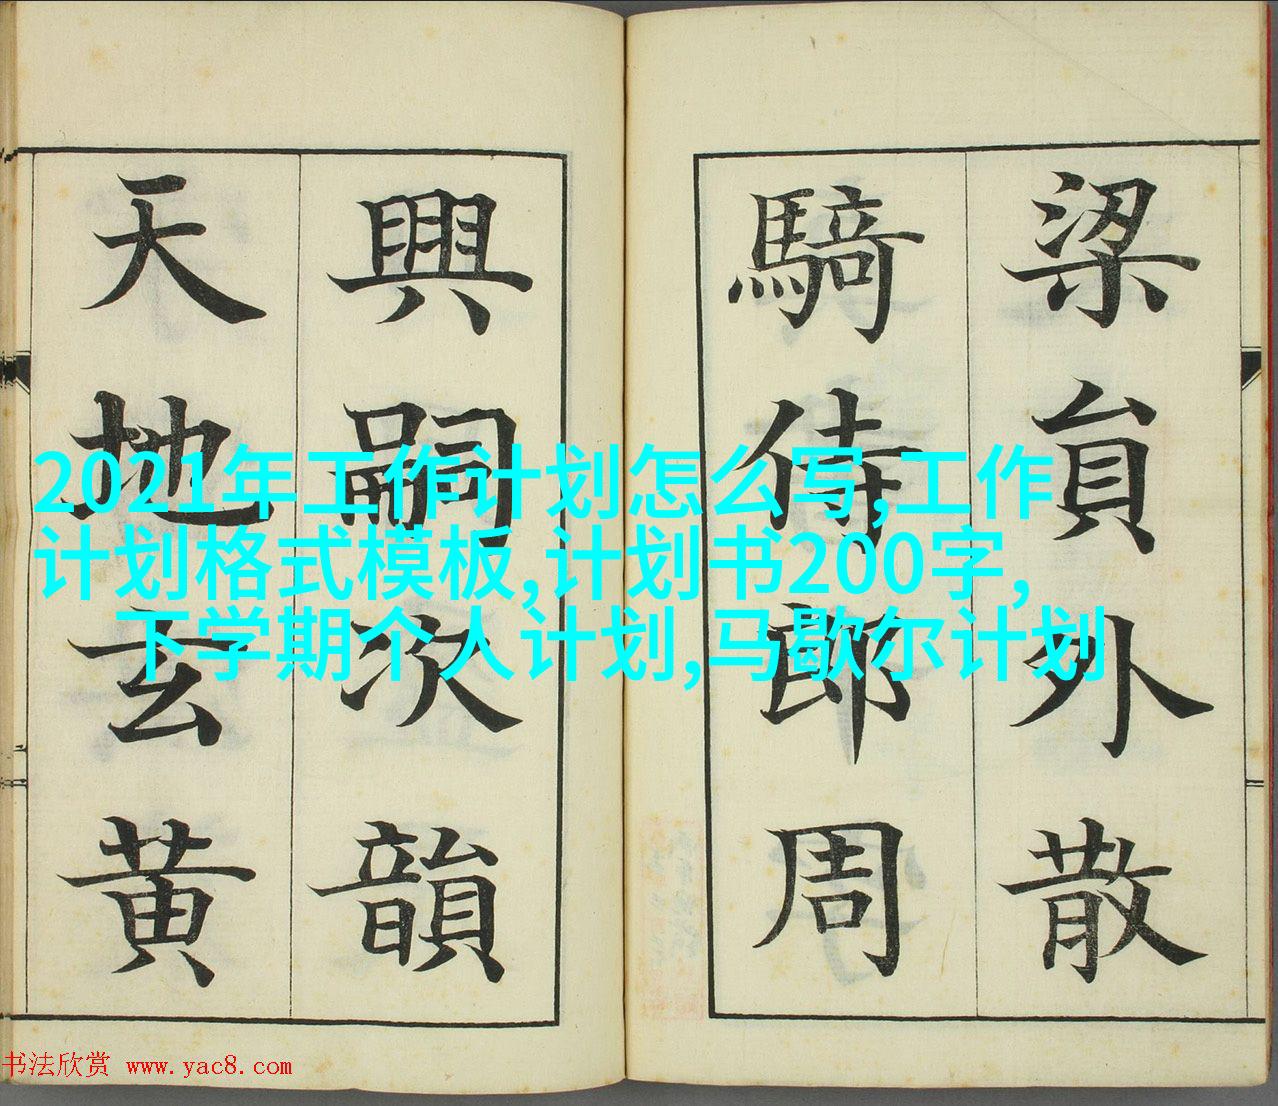 梁員外散
騎侍郎周
興嗣次韻
天地玄黄
2021年工作计划怎么写,工作
计划格式模板,计划书200字,
下学期个人计划,马歇尔计划
书法欣赏 www.yac8.com